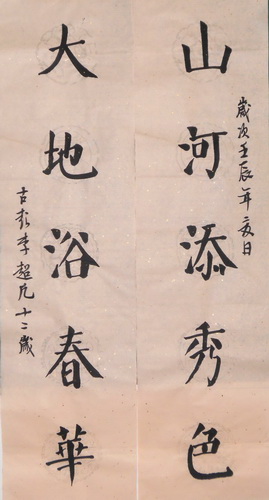 山河添秀色
歲次壬辰年二月日
大地浴春華
李超凡十二歲